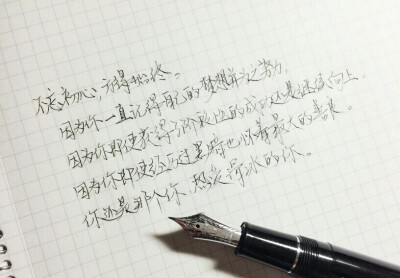 不忘初心,方得始终。
因为你一直记得自己的梦想并为之努力,
因为你即使获得了阶段性的成功还是继续向上,
因为你即使经历过黑暗也怀着最大的善良。
你还是那个你,热爱 的你。